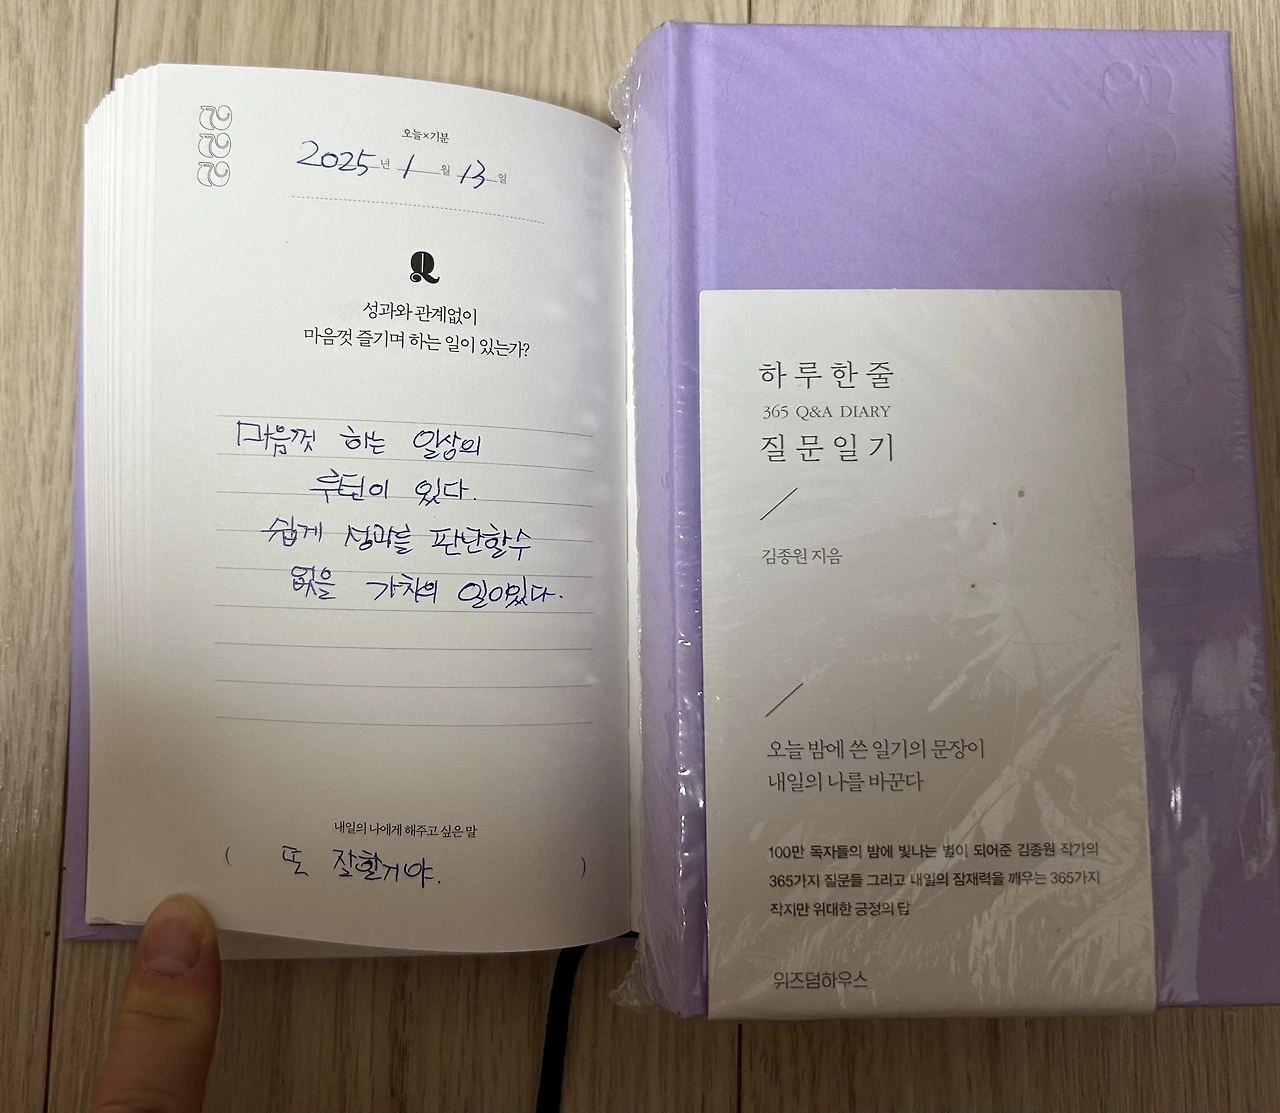 오늘×기분
2025년 1월 13일
Q
성과와 관계없이
마음껏 즐기며 하는 일이 있는가?
마음껏 하는 일상의
루틴이 있다.
쉽게 성과를 판단할수
없을 가치의 일이있다.
내일의 나에게 해주고 싶은 말
( 또 잘할거야. )
하루한줄
365 Q&A DIARY
질문일기
김종원 지음
오늘 밤에 쓴 일기의 문장이
내일의 나를 바꾼다
100만 독자들의 밤에 빛나는 별이 되어준 김종원 작가의
365가지 질문들 그리고 내일의 잠재력을 깨우는 365가지
작지만 위대한 긍정의 답
위즈덤하우스